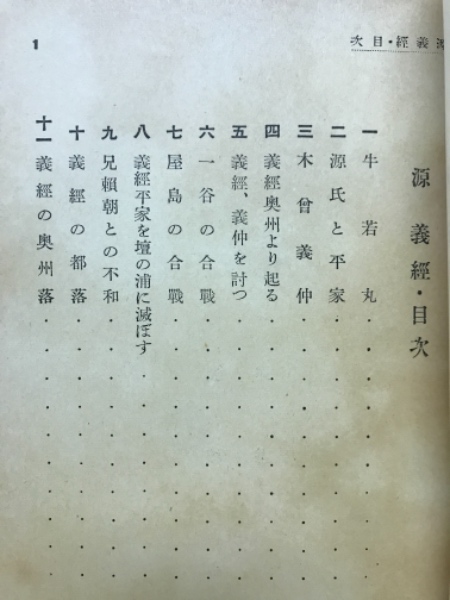 源義經・目次
源義經・目次
一 牛若丸
二 源氏と平家
三 木曾義仲
四 義經奥州より起る
五 義經、義仲を討つ
六 一谷の合戰
七 屋島の合戰
八 義經平家を壇の浦に滅ぼす
九 兄賴朝との不和
十 義經の都落
十一 義經の奥州落
1